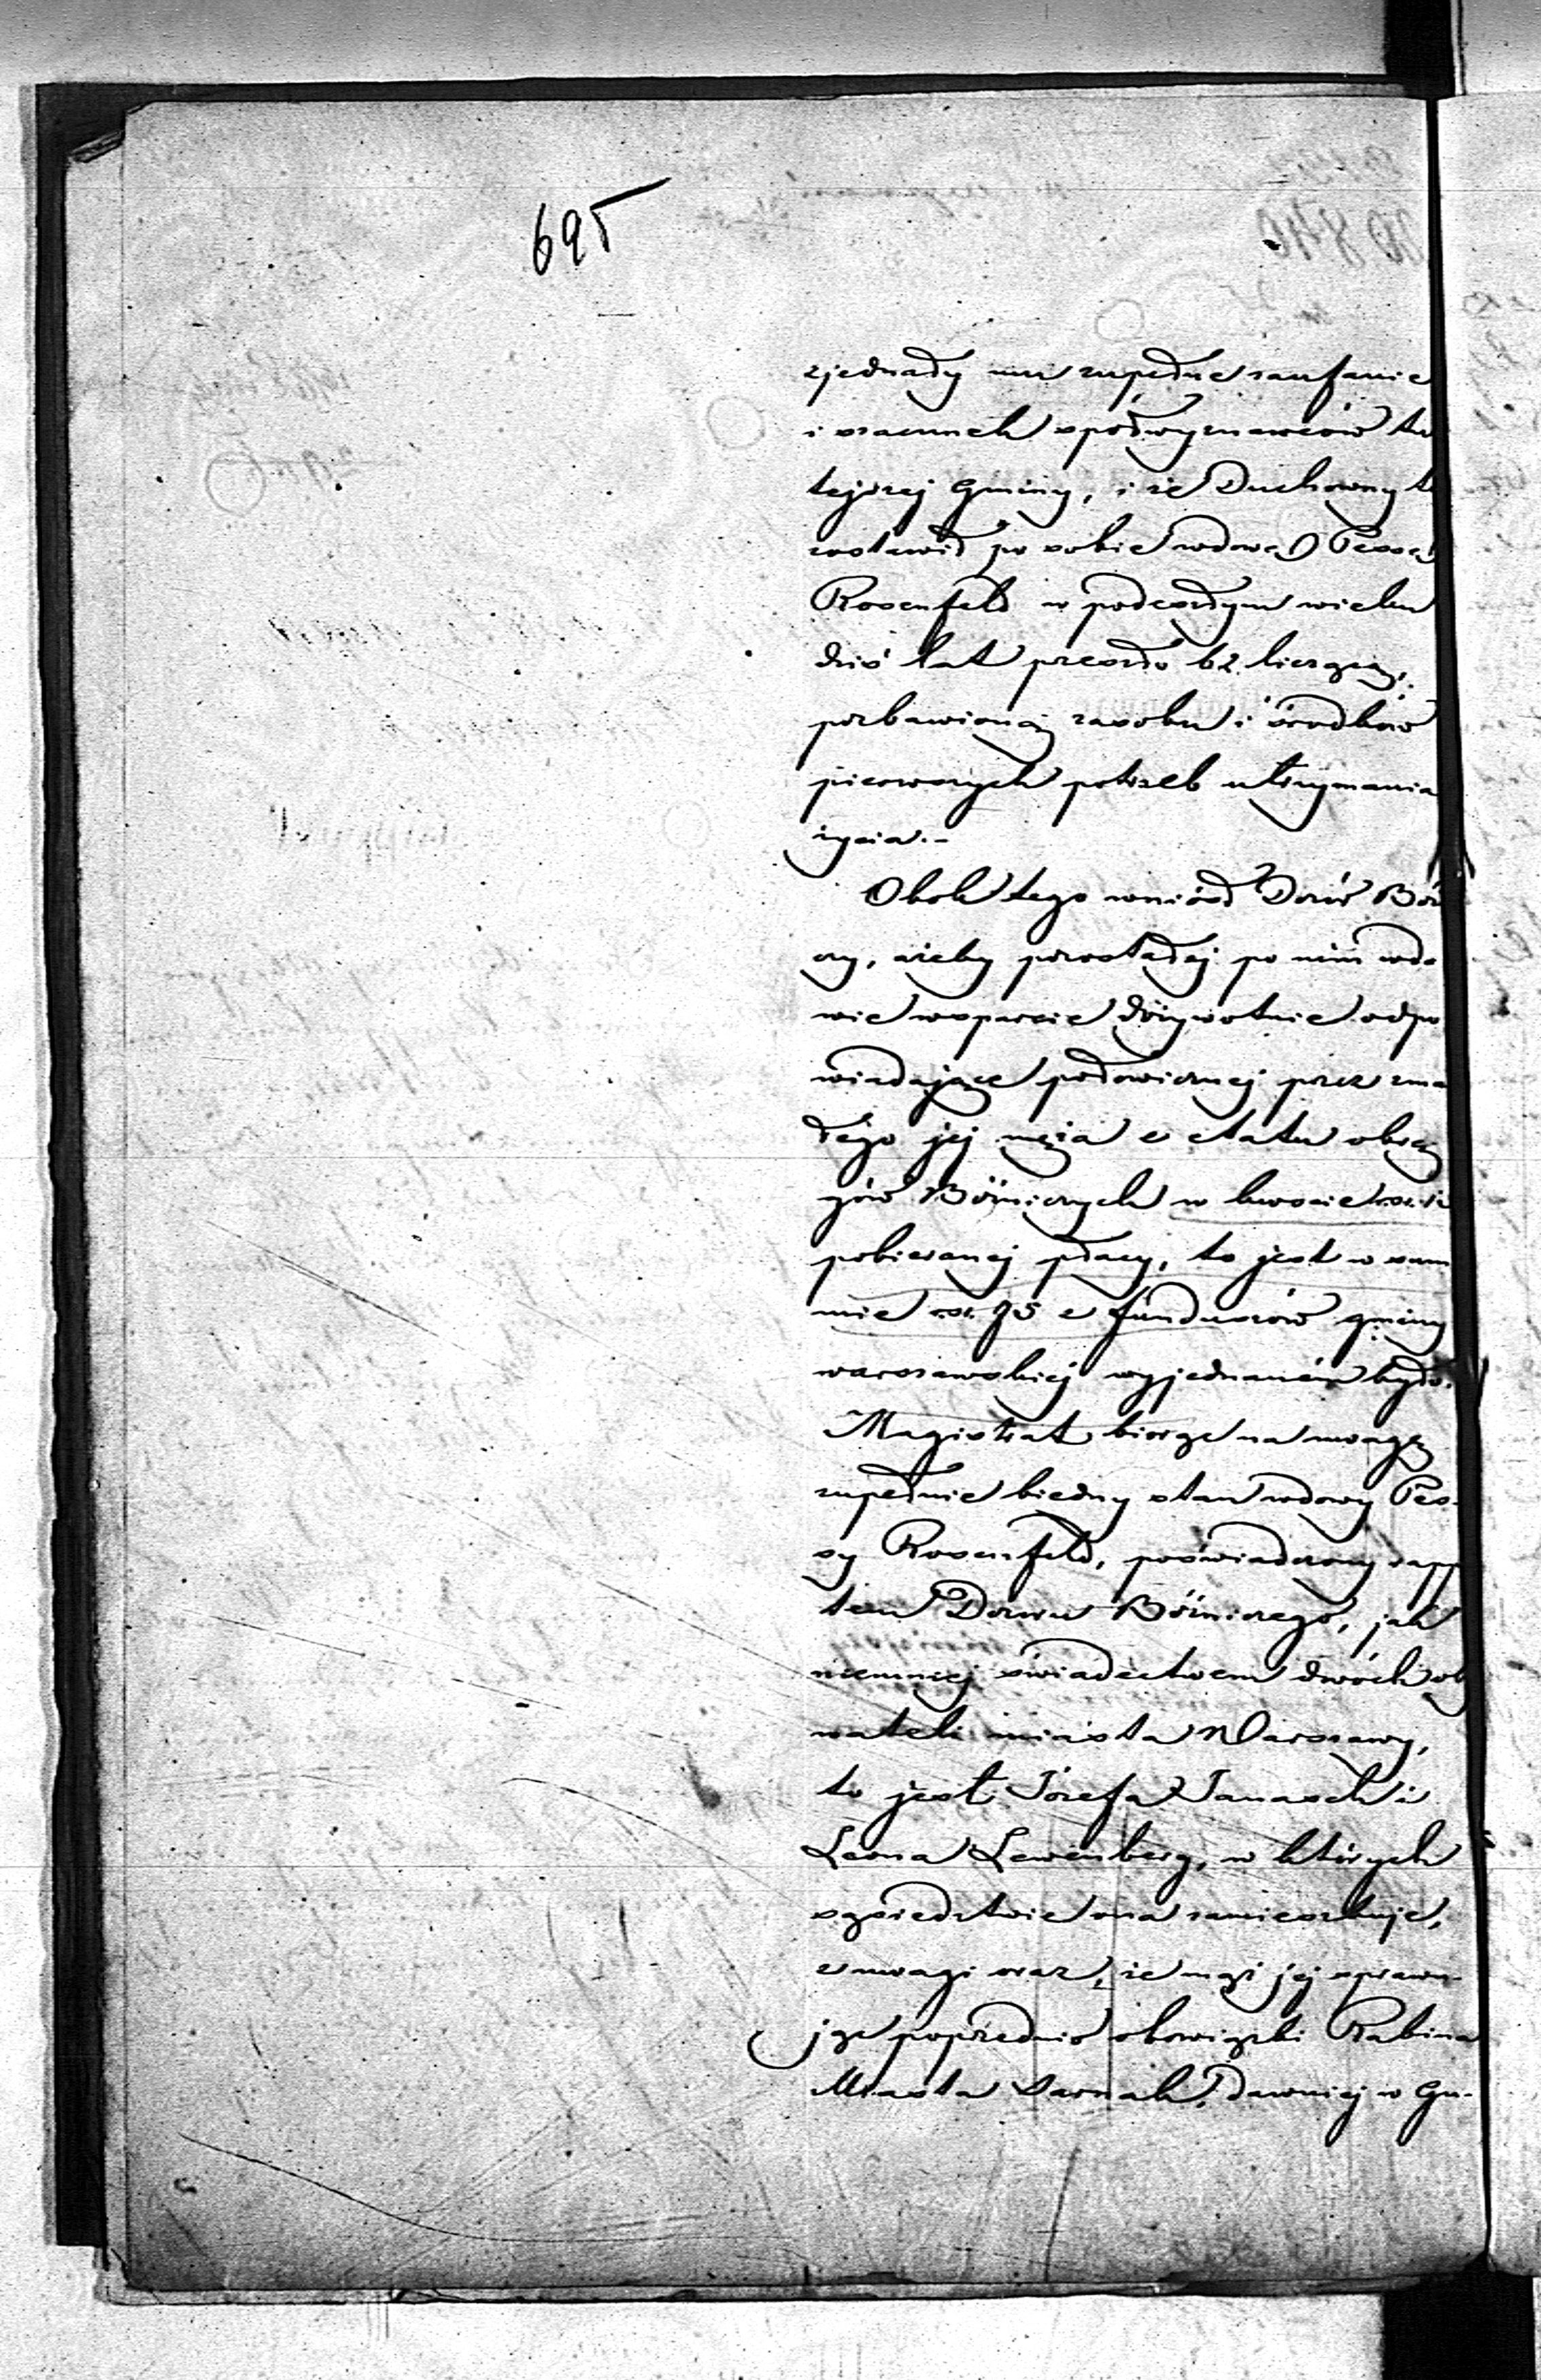 695
zjednały mu zupełne zaufanie
i szacunek spółwyznawców tu
tejszej Gminy, i że Duchowny t
zostawił po sobie wdowę Pessę
Rosenfeld w podeszłym wieku
dziś lat przeszło 62 liczącą,
pozbawioną zasobu i środków
pierwszych potrzeb utrzymania
życia.-
Obok tego wniósł Dozór Boż
czy, ażeby pozostałej po nim wdo
wie wsparcie dożywotnie odpo
wiadające połowicznej przez zma
rłego jej męża z etatu obrzę
dów Bóżniczych w kwocie rsr.
pobieranej płacy, to jest w sum
mie rsr. 75 z funduszów gminy
warszawskiej wyjednanem było.
Magistrat biorąc na uwagę
zupełnie biedny stan wdowy Pes-
sy Rosenfeld, poświadczony rapp
tem Dozoru Bóżniczego, jak
niemniej świadectwem dwóch oby
wateli miasta Warszawy,
to jest Józefa Janasch i
Leona Lewenberg, w których
sąsiedztwie ona zamieszkuje,
z uwagi oraz, że mąż jej sprawu-
jąc poprzednio obowiązki Rabina
Miasta Sarnak, dawniej w Gu-